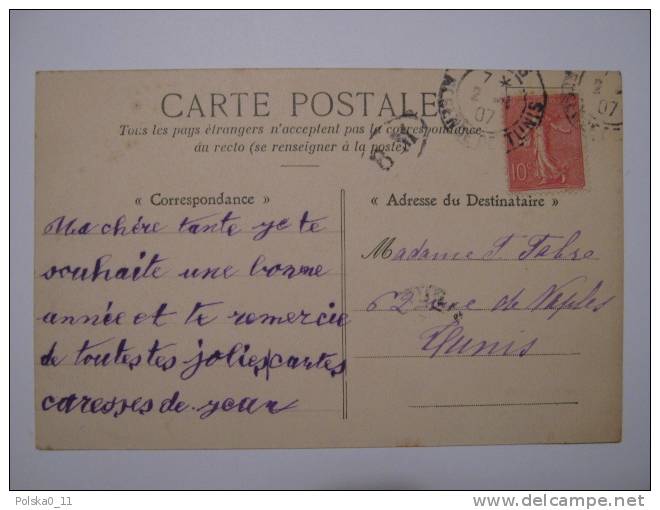 CARTE POSTALE
Tous les pays étrangers n'acceptent pas la correspondance
au recto (se renseigner à la poste)
« Correspondance »
« Adresse du Destinataire »
Ma chère tante je te
souhaite une bonne
année et te remercie
de toutes tes jolies cartes
caresses de jean
Madame T. Fabre
62 rue de Naples
Tunis
10c
TUNIS
07
07
Polska0_11
www.delcampe.net